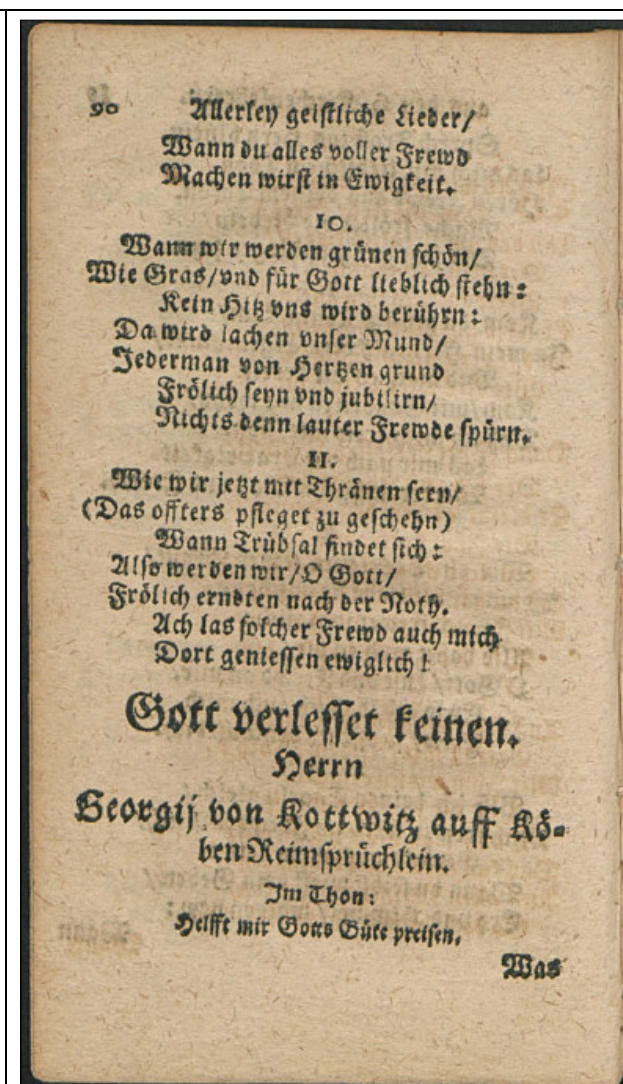 90 Allerley geistliche Lieder/
Wann du alles voller Frewd
Machen wirst in Ewigkeit.
10.
Wann wir werden grünen schön/
Wie Gras/vnd für Gott lieblich stehn:
Kein Hitz vns wird berührn:
Da wird lachen vnser Mund/
Jederman von Hertzen grund
Frölich seyn vnd jubilirn/
Nichts denn lauter Frewde spürn.
11.
Wie wir jetzt mit Thränen seen/
(Das offters pfleget zu geschehn)
Wann Trübsal findet sich:
Also werden wir/O Gott/
Frölich erndten nach der Noth.
Ach las solcher Frewd auch mich
Dort geniessen ewiglich!
Gott verlesset keinen.
Herrn
Georgij von Kottwitz auff Kö-
ben Reimsprüchlein.
Im Thon:
Helfft mir Gotts Güte preisen.
Was